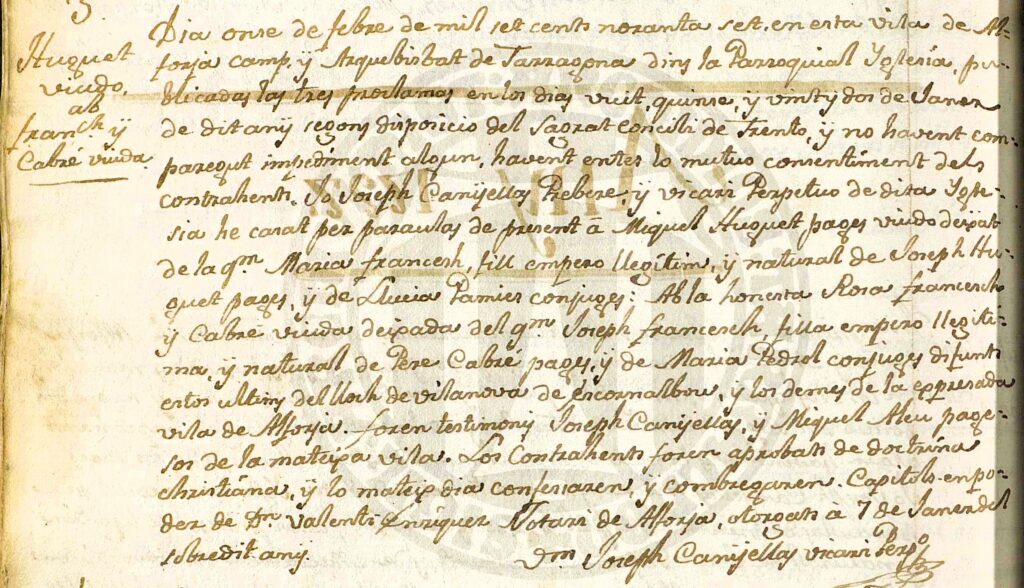 3
Huguet
viudo,
ab
franch y
Cabré viuda
Dia onse de febre de mil set cents noranta set, en esta vila de Al-
forja camp, y Arquebisbat de Tarragona dins la Parroquial Yglesia, pu-
blicadas las tres proclamas en los dias vuit, quinse, y vint y dos de Janer
de dit any segons disposicio del Sagrat Concili de Trento, y no havent com-
paregut impediment algun, havent entes lo mutuo consentiment dels
contrahents, Jo Joseph Canyellas Prebere, y vicari Perpetuo de dita Ygle-
sia he casat per paraulas de present â Miquel Huguet pages viudo deixat
de la qm. Maria francesh, fill empero llegitim, y natural de Joseph Hu-
guet pages, y de Llucia Pamies conjuges: Ab la honesta Rosa francesch
y Cabré viuda deixada del qm. Joseph francesch, filla empero llegiti-
ma, y natural de Pere Cabré pages, y de Maria Pedrol conjuges difunts
estos ultims del lloch de vilanova de escornalbou, y los demes de la expresada
vila de Alforja. foren testimonis Joseph Canyellas, y Miquel Aleu page-
sos de la mateixa vila. Los Contrahents foren aprobats de doctrina
christiana, y lo mateix dia confessaren, y combregaren. Capitols en po-
der de Dn. Valenti Enriquez Notari de Alforja, otorgats â 7 de Janer del
sobredit any.
Dn. Joseph Canyellas vicari Perpo.